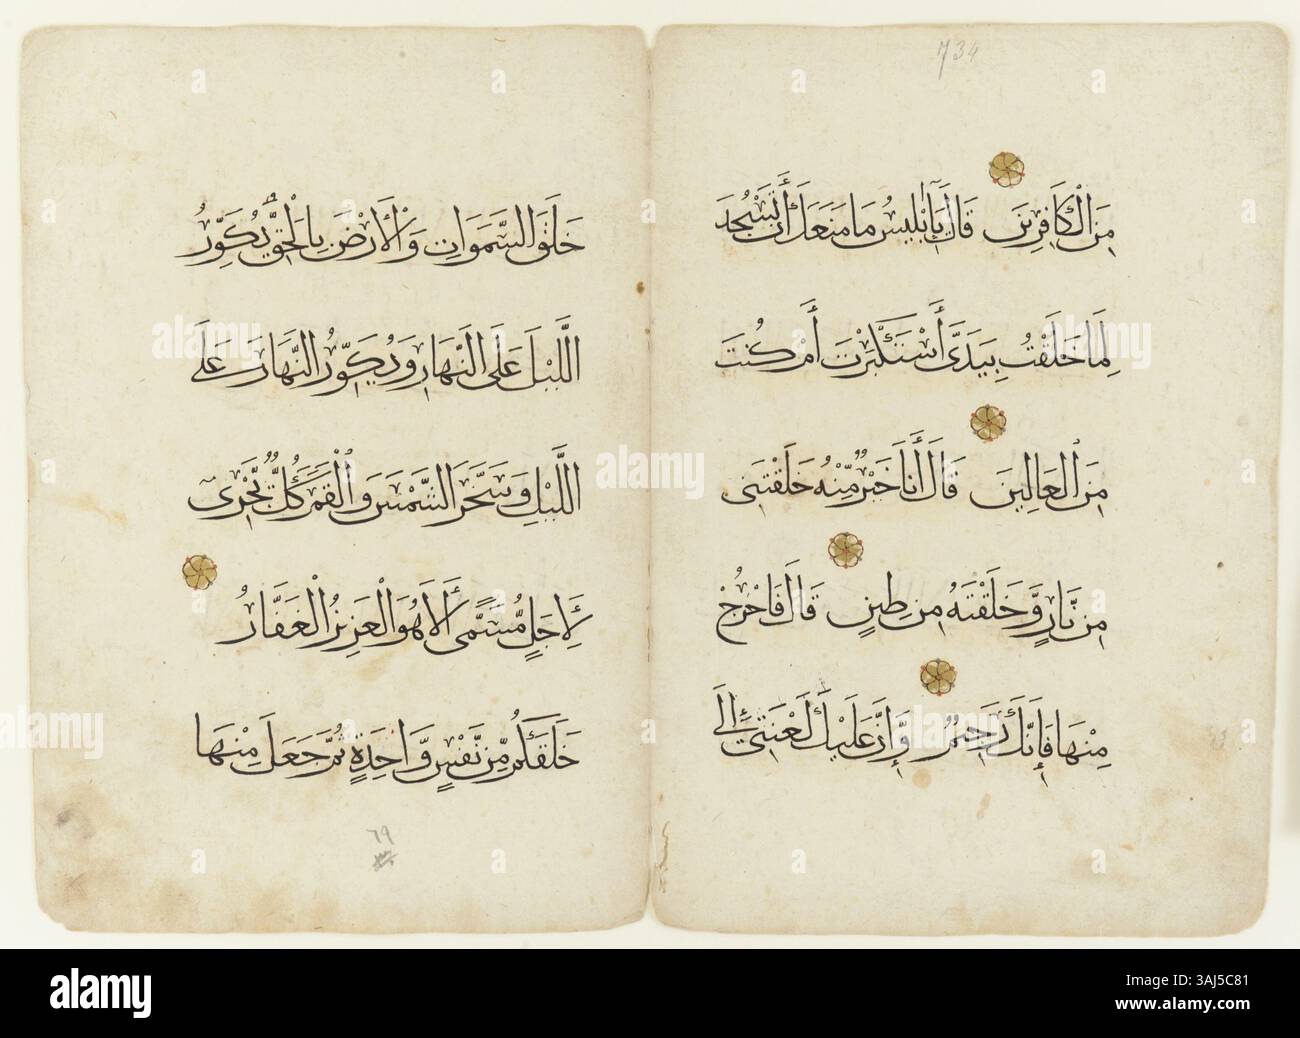 734
مِنَ الْكَافِرِينَ قَالَ يَٓا إِبْلِيسُ مَا مَنَعَكَ أَن تَسْجُدَ
لِمَا خَلَقْتُ بِيَدَىَّ أَسْتَكْبَرْتَ أَمْ كُنتَ
مِنَ الْعَالِينَ قَالَ أَنَا خَيْرٌ مِّنْهُ خَلَقْتَنِى
مِن نَّارٍ وَّخَلَقْتَهُ مِن طِينٍ قَالَ فَاخْرُجْ
مِنْهَا فَإِنَّكَ رَجِيمٌ وَّإِنَّ عَلَيْكَ لَعْنَتِىٓ إِلَىٰ
خَلَقَ السَّمَوَاتِ وَالْأَرْضَ بِالْحَقِّ يُكَوِّرُ
اللَّيْلَ عَلَى النَّهَارِ وَيُكَوِّرُ النَّهَارَ عَلَى
اللَّيْلِ وَسَخَّرَ الشَّمْسَ وَالْقَمَرَ كُلٌّ يَّجْرِى
لِأَجَلٍ مُّسَمًّى أَلَا هُوَ الْعَزِيزُ الْغَفَّارُ
خَلَقَكُم مِّن نَّفْسٍ وَّاحِدَةٍ ثُمَّ جَعَلَ مِنْهَا
٦٩
alamy
alamy
Image ID: 3AJ5C81
www.alamy.com